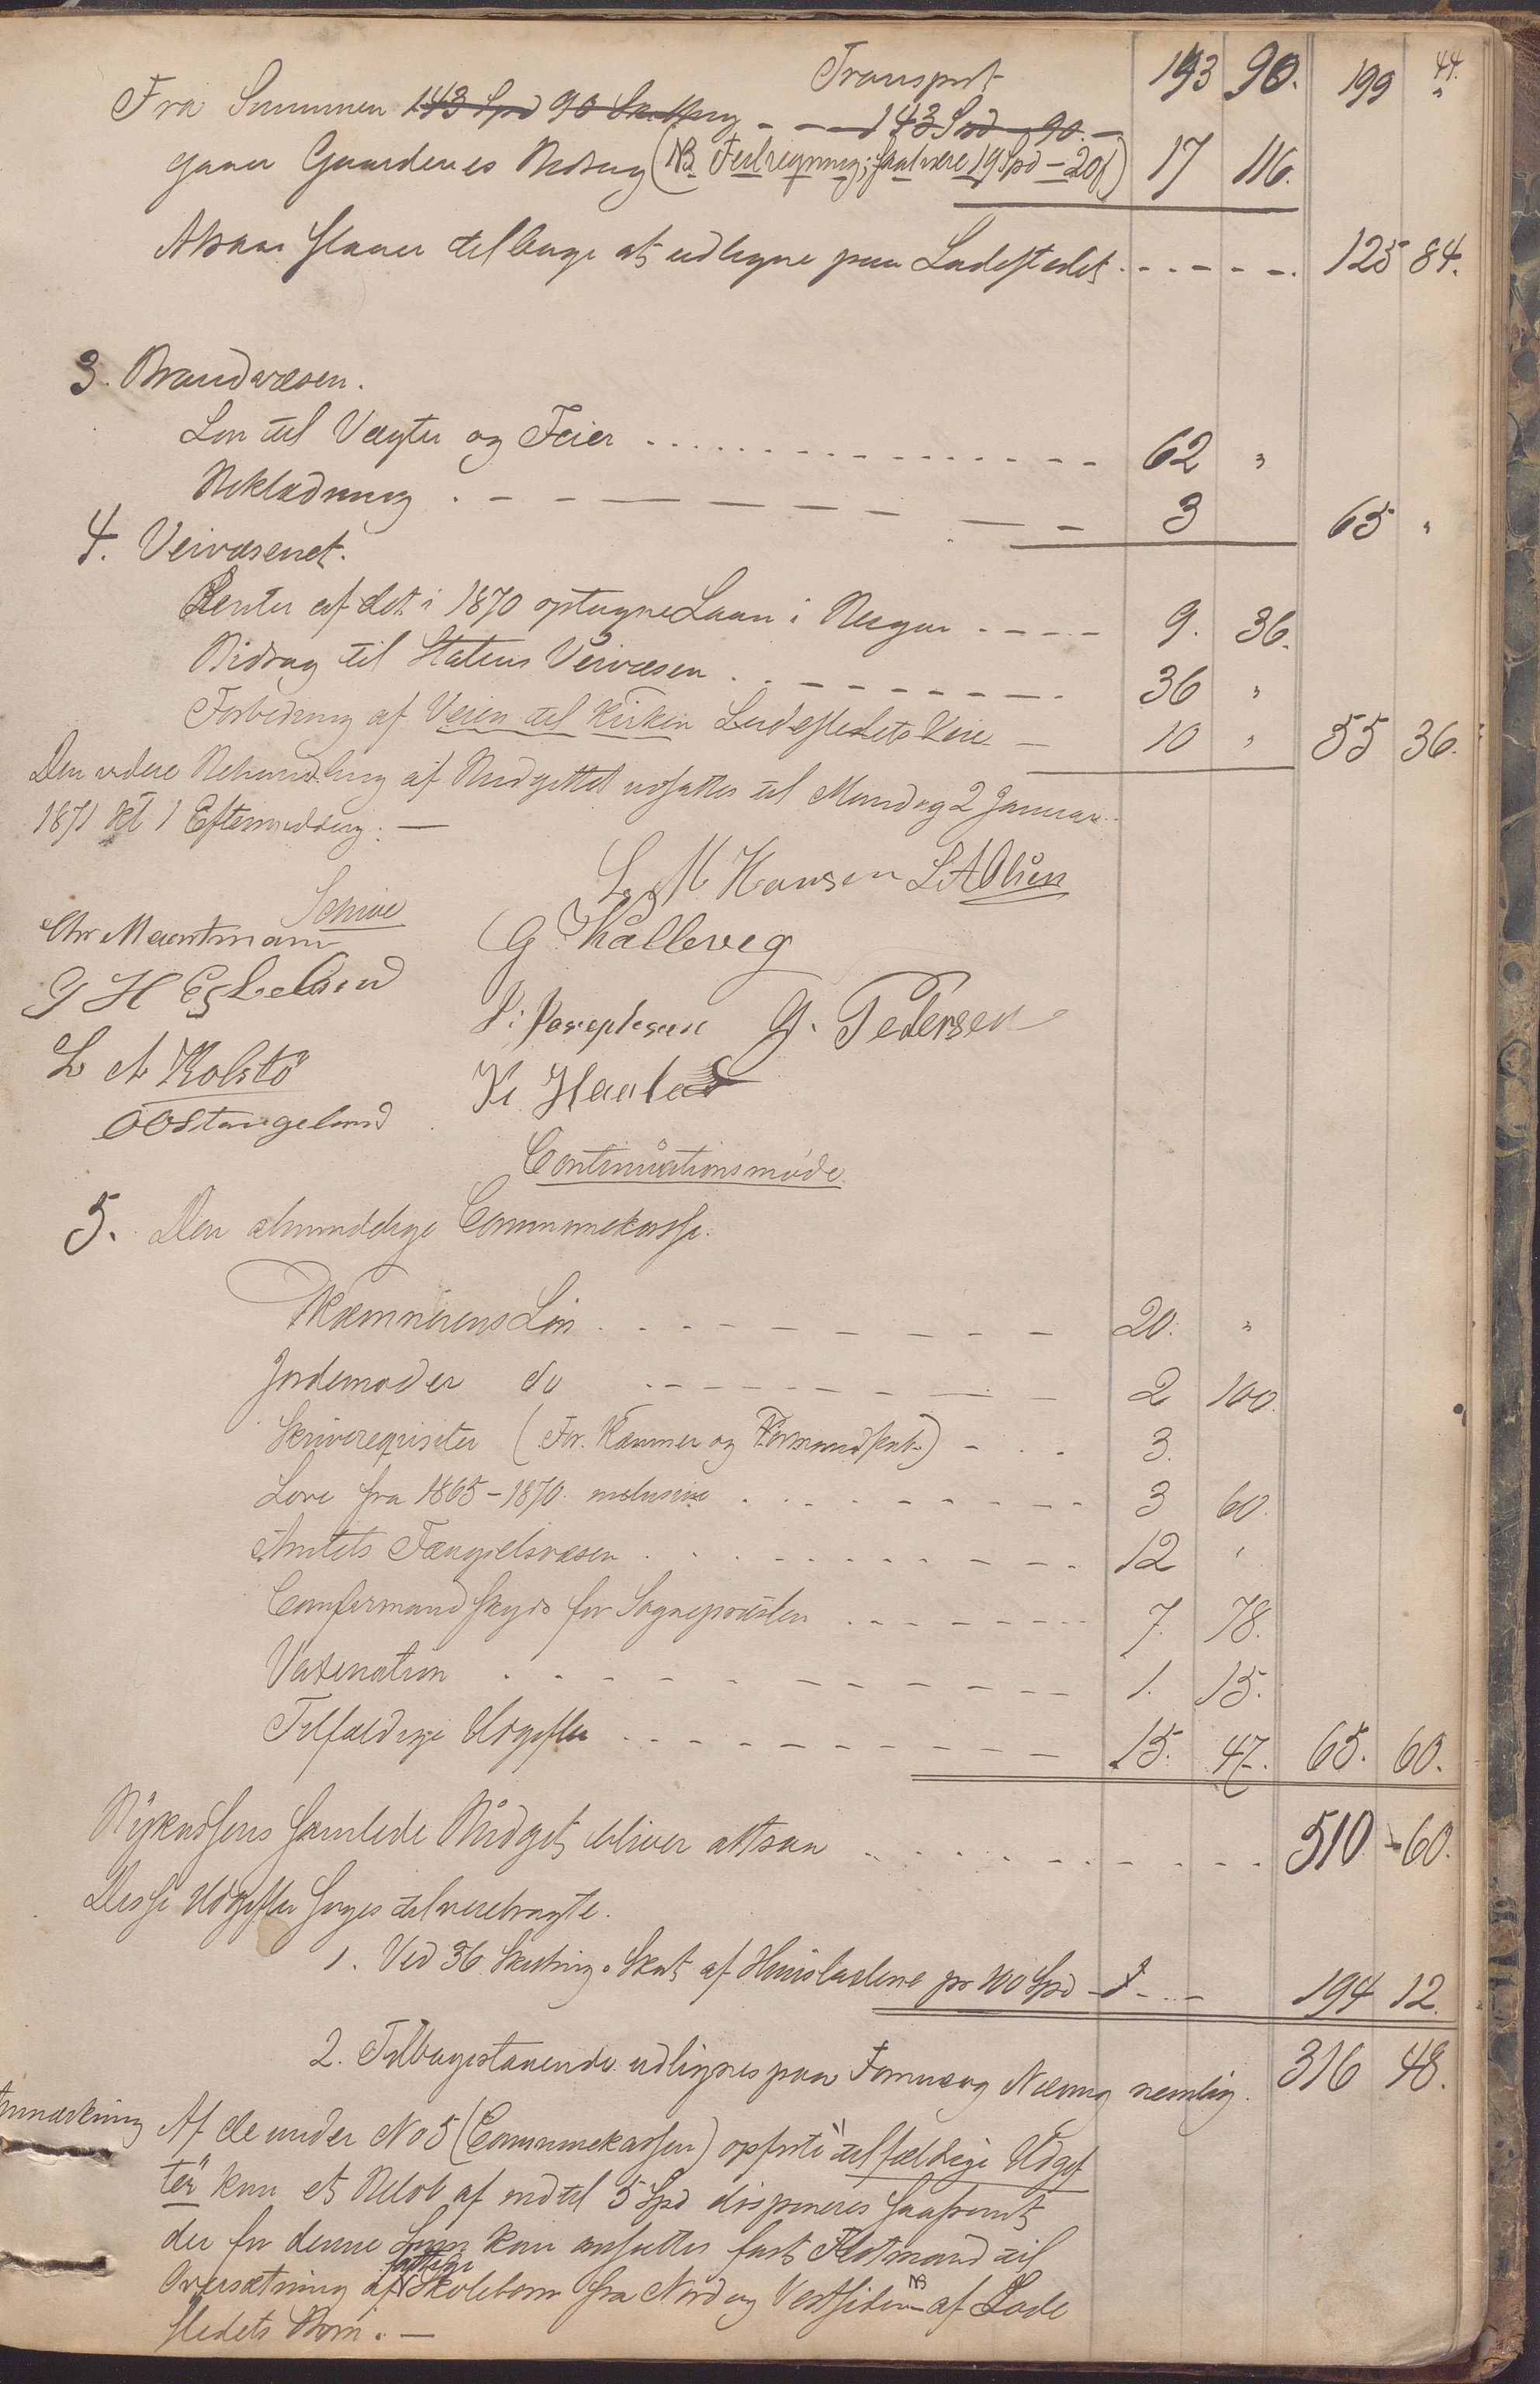 Transport 193 90. 199 44.
Fra Summen 143 Spd 90 Skilling - - - 143 Spd 90. -
gaaer Gaardenes Bidrag (NB Feilregning; skal være 19 Spd - 20 ß) 17 116.
Altsaa staaer tilbage at udligne paa Ladestedet - - - - - 125 84.
3. Brandvæsen.
Løn til Vægter og Feier - - - - 62 "
Beklædning - - - - 3 65 "
4. Veivæsenet.
Renter af det i 1870 optagne Laan i Bergen - - - - 9. 36.
Bidrag til Statens Veivæsen - - - - 36 "
Forbedring af Veien til Kirken Ladestedets Veie - 10 " 55 36.
Den videre Behandling af Budgettet udsattes til Mandag 2 Januar
1871 Kl 1 Eftermiddag. —
Schiøe L. M Hansen L A Olsen
Chr Meentmann G Kallevig
G H Eskeland P. Josephsen G. Pedersen
L A Kolstö K. Hauland
O O Stangeland
Continuationsmøde.
5. Den almindelige Communekasse.
Kæmnerens Løn - - - - 20. "
Jordemoder do - - - - 2 100.
Skriverequisiter (For Kæmner og Formandskab) - - - 3.
Love fra 1865-1870 inclusive - - - - 3 60.
Amtets Fængselsvæsen - - - - 12 "
Confirmand Skyds for Sognepræsten - - - - 7. 78.
Vaxination - - - - 1. 15.
Tilfældige Udgifter - - - - 15. 47. 65. 60.
Bykassens samlede Budget bliver altsaa - - - - 510 - 60.
Disse Udgifter søges tilveiebragte.
1. Ved 36 Skilling Skat af Huusladene pr 100 Spd - - - 194 12.
2. Tilbagestaaende udlignes paa Formue og Næring nemlig. 316 48.
Anmærkning Af de under No 5 (Communekassen) opførte "tilfældige Udgif
ter" kan et Beløb af indtil 5 Spd disponeres saafremt
der for denne Sum kan ansættes fast Flotmand til
Oversætning af fattige Skolebørn fra Nord og Vestsiden af Lade
stedets Havn. —